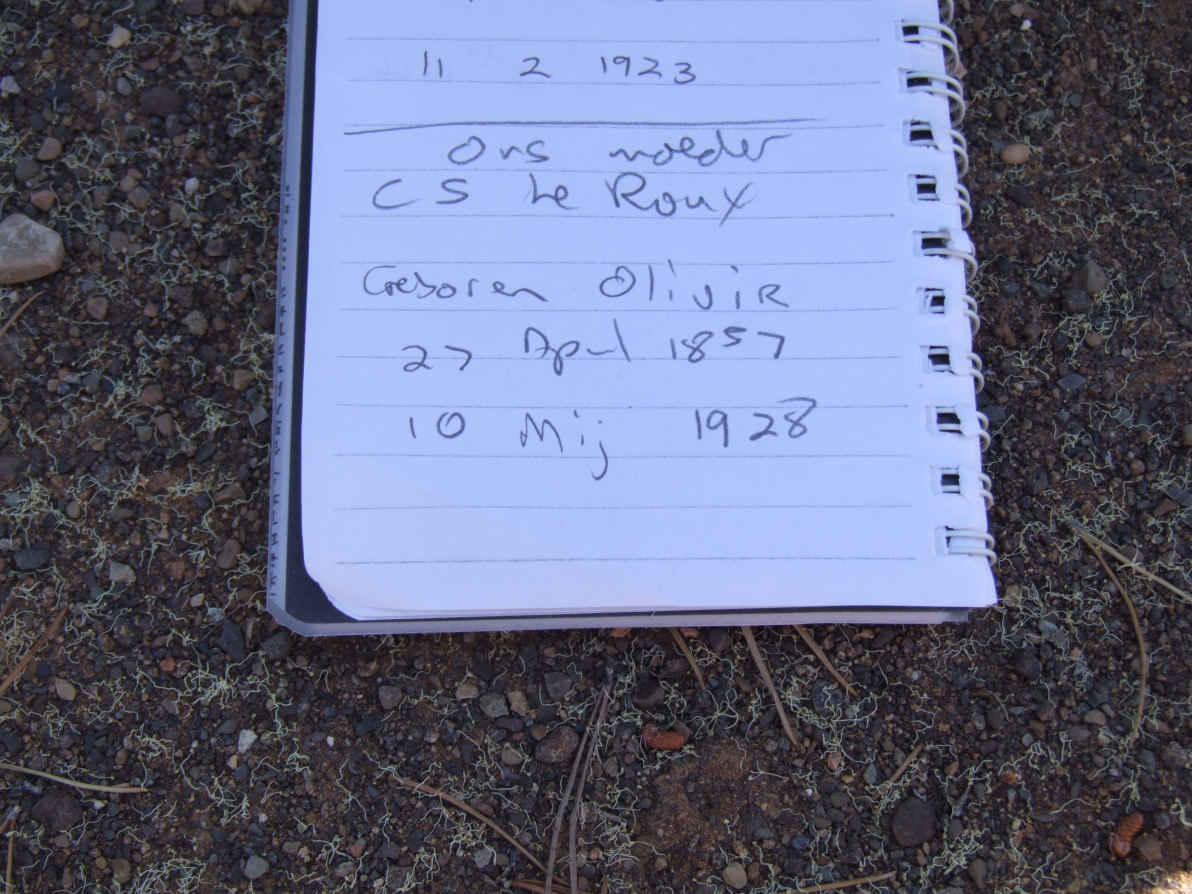 11 2 1923
Ons moeder
CS Le Roux
Geboren Olivir
27 April 1857
10 Mij 1928